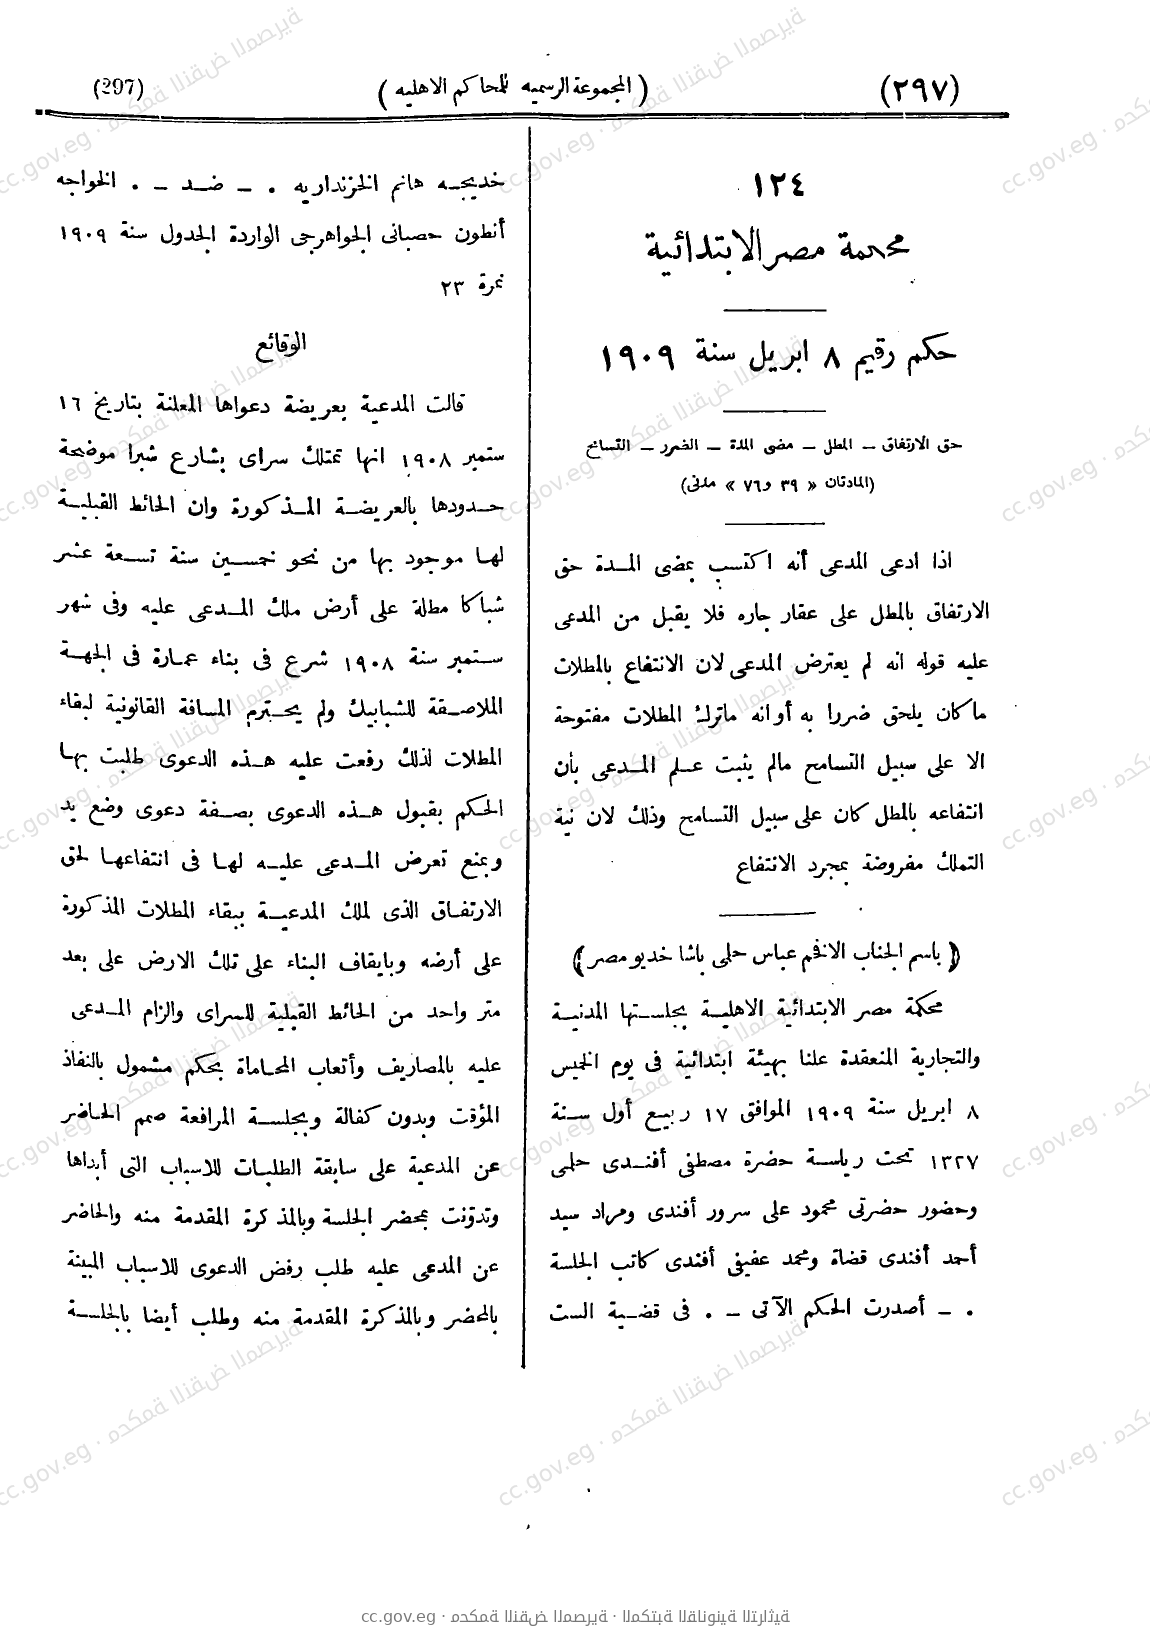 (٢٩٧)
(المجموعة الرسميه للمحاكم الاهليه)
(297)
١٢٤
محكمة مصر الابتدائية
حكم رقيم ٨ ابريل سنة ١٩٠٩
حق الارتفاق – المطل – مضى المدة – الضرر – التسامح
(المادتان « ٣٩ و٧٦ » مدنى)
اذا ادعى المدعى أنه اكتسب بمضى المدة حق
الارتفاق بالمطل على عقار جاره فلا يقبل من المدعى
عليه قوله انه لم يعترض المدعى لان الانتفاع بالمطلات
ما كان يلحق ضررا به أو انه ماترك المطلات مفتوحة
الا على سبيل التسامح مالم يثبت علم المدعى بأن
انتفاعه بالمطل كان على سبيل التسامح وذلك لان نية
التملك مفروضة بمجرد الانتفاع
(باسم الجناب الافخم عباس حلمى باشا خديو مصر)
محكمة مصر الابتدائية الاهلية بجلستها المدنية
والتجارية المنعقدة علنا بهيئة ابتدائية فى يوم الخميس
٨ ابريل سنة ١٩٠٩ الموافق ١٧ ربيع أول سنة
١٣٢٧ تحت رياسة حضرة مصطفى أفندى حلمى
وحضور حضرتى محمود على سرور أفندى ومراد سيد
أحمد أفندى قضاة ومحمد عفيفى أفندى كاتب الجلسة
. – أصدرت الحكم الآتى – . فى قضية الست
خديجه هانم الخزنداريه . – ضد – . الخواجه
أنطون حصبانى الجواهرجى الواردة الجدول سنة ١٩٠٩
نمرة ٢٣
الوقائع
قالت المدعية بعريضة دعواها المعلنة بتاريخ ١٦
ستمبر ١٩٠٨ انها تمتلك سراى بشارع شبرا موضحة
حدودها بالعريضة المذكورة وان الحائط القبلية
لها موجود بها من نحو خمسين سنة تسعة عشر
شباكا مطلة على أرض ملك المدعى عليه وفى شهر
ستمبر سنة ١٩٠٨ شرع فى بناء عمارة فى الجهة
الملاصقة للشبابيك ولم يحترم المسافة القانونية لبقاء
المطلات لذلك رفعت عليه هذه الدعوى طلبت بها
الحكم بقبول هذه الدعوى بصفة دعوى وضع يد
وبمنع تعرض المدعى عليه لها فى انتفاعها لحق
الارتفاق الذى لملك المدعية ببقاء المطلات المذكورة
على أرضه وبايقاف البناء على تلك الارض على بعد
متر واحد من الحائط القبلية للسراى والزام المدعى
عليه بالمصاريف وأتعاب المحاماة بحكم مشمول بالنفاذ
المؤقت وبدون كفالة وبجلسة المرافعة صمم الحاضر
عن المدعية على سابقة الطلبات للاسباب التى أبداها
وتدوّنت بمحضر الجلسة وبالمذكرة المقدمة منه والحاضر
عن المدعى عليه طلب رفض الدعوى للاسباب المبينة
بالمحضر وبالمذكرة المقدمة منه وطلب أيضا بالجلسة
cc.gov.eg · محكمة النقض المصرية · المكتبة القانونية التراثية